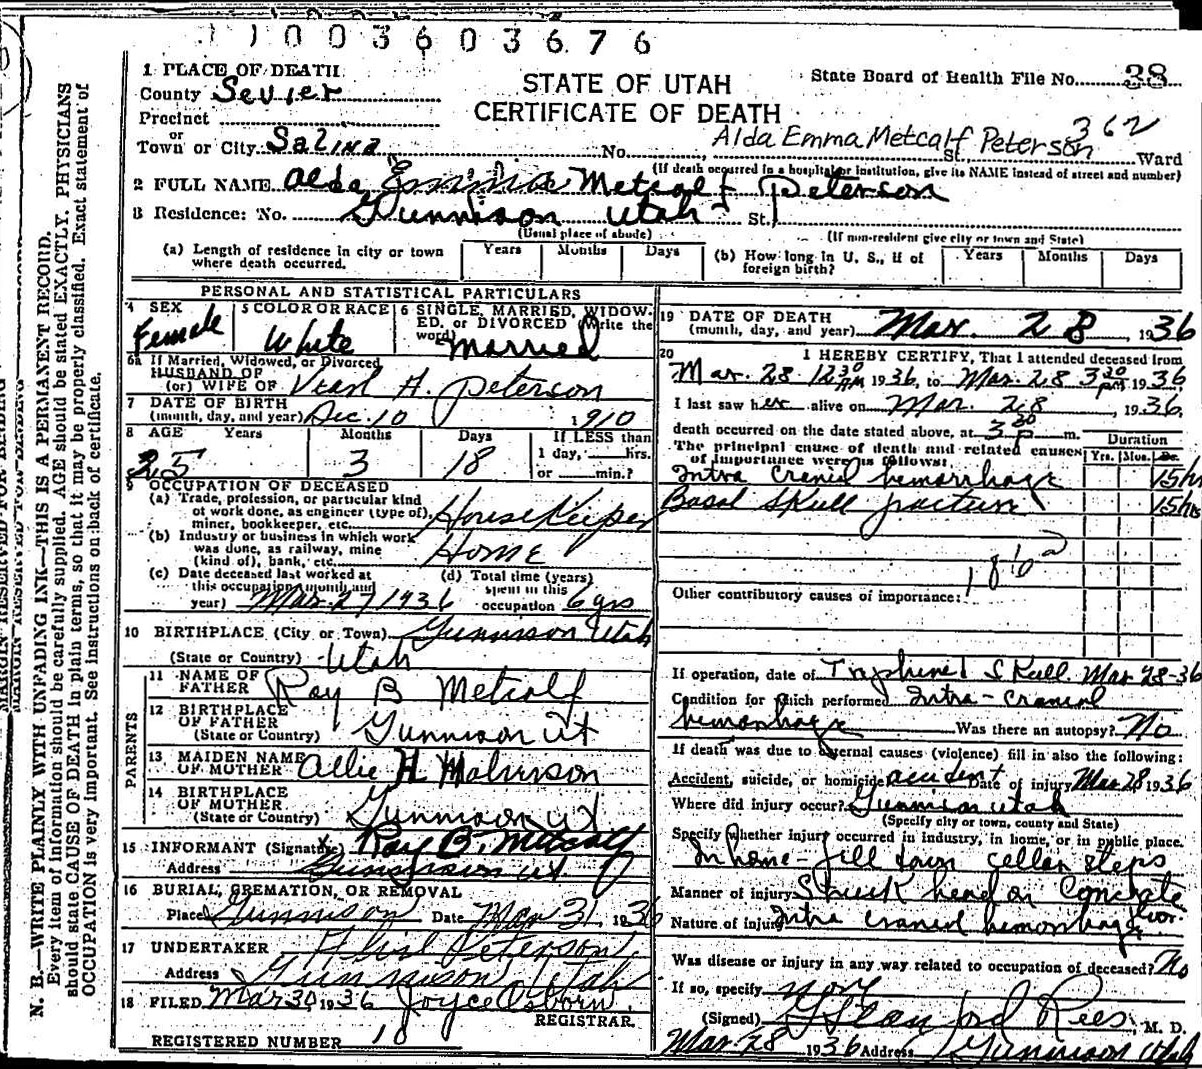 11003603676
1 PLACE OF DEATH
County Sevier
Precinct
or
Town or City Salina No. St., Ward
STATE OF UTAH
CERTIFICATE OF DEATH
State Board of Health File No. 38
362
Alda Emma Metcalf Peterson
(If death occurred in a hospital or institution, give its NAME instead of street and number)
2 FULL NAME Alda Emma Metcalf Peterson
3 Residence: No. Gunnison Utah St.
(Usual place of abode) (If non-resident give city or town and State)
(a) Length of residence in city or town where death occurred. Years Months Days
(b) How long in U. S., if of foreign birth? Years Months Days
PERSONAL AND STATISTICAL PARTICULARS
4 SEX Female
5 COLOR OR RACE White
6 SINGLE, MARRIED, WIDOWED, or DIVORCED (Write the word) Married
6a If Married, Widowed, or Divorced
HUSBAND OF
(or) WIFE OF H. Peterson
7 DATE OF BIRTH
(month, day, and year) Dec. 10 1910
8 AGE Years Months Days If LESS than
25 3 18 1 day, hrs.
or min.?
9 OCCUPATION OF DECEASED
(a) Trade, profession, or particular kind
of work done, as engineer (type of),
miner, bookkeeper, etc. House Keeper
(b) Industry or business in which work
was done, as railway, mine
(kind of), bank, etc. Home
(c) Date deceased last worked at
this occupation (month and
year) Mar 27 1936
(d) Total time (years)
spent in this
occupation 6 yrs
10 BIRTHPLACE (City or Town) Gunnison Utah
(State or Country) Utah
PARENTS
11 NAME OF
FATHER Ray B Metcalf
12 BIRTHPLACE
OF FATHER
(State or Country) Gunnison Ut
13 MAIDEN NAME
OF MOTHER Allie H
14 BIRTHPLACE
OF MOTHER
(State or Country) Gunnison Ut
15 INFORMANT (Signature) x Ray B. Metcalf
Address Gunnison Ut
16 BURIAL, CREMATION, OR REMOVAL
Place Gunnison Date Mar 31 1936
17 UNDERTAKER Peterson
Address Gunnison Utah
18 FILED Mar 30, 1936 Joyce Osborn
REGISTRAR.
REGISTERED NUMBER 18
19 DATE OF DEATH
(month, day, and year) Mar. 28, 1936
20 I HEREBY CERTIFY, That I attended deceased from
Mar. 28 12 30 AM 1936, to Mar. 28 3 30 pm 1936,
I last saw her alive on Mar. 28, 1936,
death occurred on the date stated above, at 3 30 p m.
The principal cause of death and related causes
of importance were as follows:
Duration
Yrs. Mos. Ds.
Intra Cranial hemorrhage 15 hrs
Basal Skull fracture 15 hrs
Other contributory causes of importance:
If operation, date of Trephined Skull Mar 28-36
Condition for which performed Intra-Cranial
hemorrhage Was there an autopsy? No
If death was due to external causes (violence) fill in also the following:
Accident, suicide, or homicide accident Date of injury Mar 28 1936
Where did injury occur? Gunnison Utah
(Specify city or town, county and State)
Specify whether injury occurred in industry, in home, or in public place.
In home - fell down cellar steps
Manner of injury Struck head on Concrete
floor.
Nature of injury Intra cranial hemorrhage
Was disease or injury in any way related to occupation of deceased? No
If so, specify
(Signed) Rees, M. D.
Mar 28 1936 Address Gunnison Utah
MARGIN RESERVED FOR BINDING
N. B.—WRITE PLAINLY WITH UNFADING INK—THIS IS A PERMANENT RECORD.
Every item of information should be carefully supplied. AGE should be stated EXACTLY. PHYSICIANS
should state CAUSE OF DEATH in plain terms, so that it may be properly classified. Exact statement of
OCCUPATION is very important. See instructions on back of certificate.